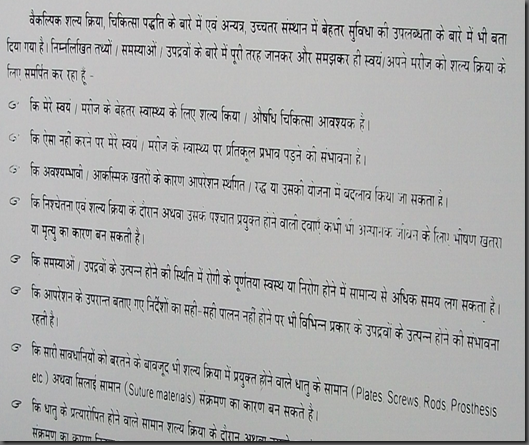 वैकल्पिक शल्य क्रिया, चिकित्सा पद्धति के बारे में एवं अन्यत्र, उच्चतर संस्थान में बेहतर सुविधा की उपलब्धता के बारे में भी बता
दिया गया है। निम्नलिखित तथ्यों / समस्याओं / उपद्रवों के बारे में पूरी तरह जानकर और समझकर ही स्वयं/अपने मरीज को शल्य क्रिया के
लिए समर्पित कर रहा हूँ -
कि मेरे स्वयं / मरीज के बेहतर स्वास्थ्य के लिए शल्य किया / औषधि चिकित्सा आवश्यक है।
कि ऐसा नहीं करने पर मेरे स्वयं / मरीज के स्वास्थ्य पर प्रतिकूल प्रभाव पड़ने की संभावना है।
कि अवश्यम्भावी / आकस्मिक खतरों के कारण आपरेशन स्थगित / रद्ध या उसकी योजना में बदलाव किया जा सकता है।
कि निश्चेतना एवं शल्य क्रिया के दौरान अथवा उसके पश्चात प्रयुक्त होने वाली दवाएँ कभी भी अचानक जीवन के लिए भीषण खतरा
या मृत्यु का कारण बन सकती है।
कि समस्याओं / उपद्रवों के उत्पन्न होने की स्थिति में रोगी के पूर्णतया स्वस्थ या निरोग होने में सामान्य से अधिक समय लग सकता है।
कि आपरेशन के उपरान्त बताए गए निर्देशों का सही-सही पालन नहीं होने पर भी विभिन्न प्रकार के उपद्रवों के उत्पन्न होने की संभावना
रहती है।
कि सारी सावधानियों को बरतने के बावजूद भी शल्य क्रिया में प्रयुक्त होने वाले धातु के सामान (Plates, Screws, Rods, Prosthesis
etc.) अथवा सिलाई सामान (Suture materials) संक्रमण का कारण बन सकते है।
कि धातु के प्रत्यारोपित होने वाले सामान शल्य क्रिया के दौरान अथवा
संक्रमण का कारण